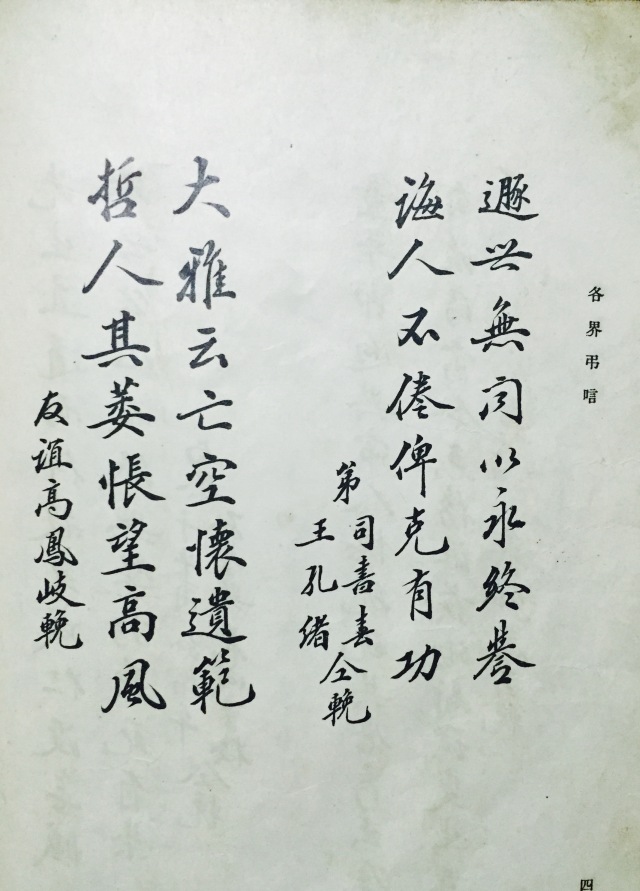 各界弔唁
遯世無悶以永終譽
誨人不倦俾克有功
第司書春
王孔緒
仝輓
大雅云亡空懷遺範
哲人其萎悵望高風
友誼高鳳岐輓
四